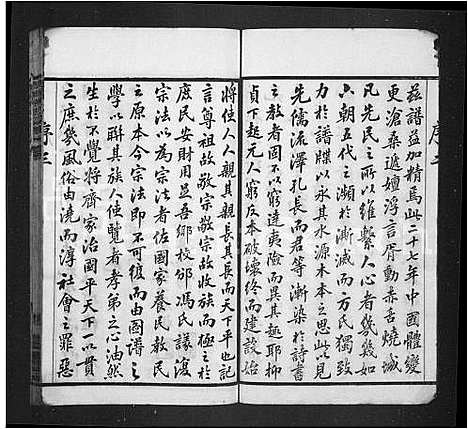 序二
茲譜益加精焉此二十七年中國體變
更滄桑遞嬗浮言胥動赤舌燒城
凡先民之所以維繫人心者幾幾如
六朝五代之瀕於漸滅而方氏獨致
力於譜牒以永其水源木本之思此以見
先儒流澤孔長而君等漸染於詩書
之教者固不以窮達夷險而異其趣耶抑
貞下起元人窮反本破壞終而建設始
將使人人親其親長其長而天下平也記
言尊祖故敬宗敬宗故收族而極之於
庶民安財用足吾鄉校邠馮氏議復
宗法以為宗法者佐國家養民教民
之原本今宗法即不可復而由圖譜之
學以聯其族人使覽者孝弟之心油然
生於不覺將齊家治國平天下一以貫
之庶幾風俗由澆而淳社會之罪惡
序三